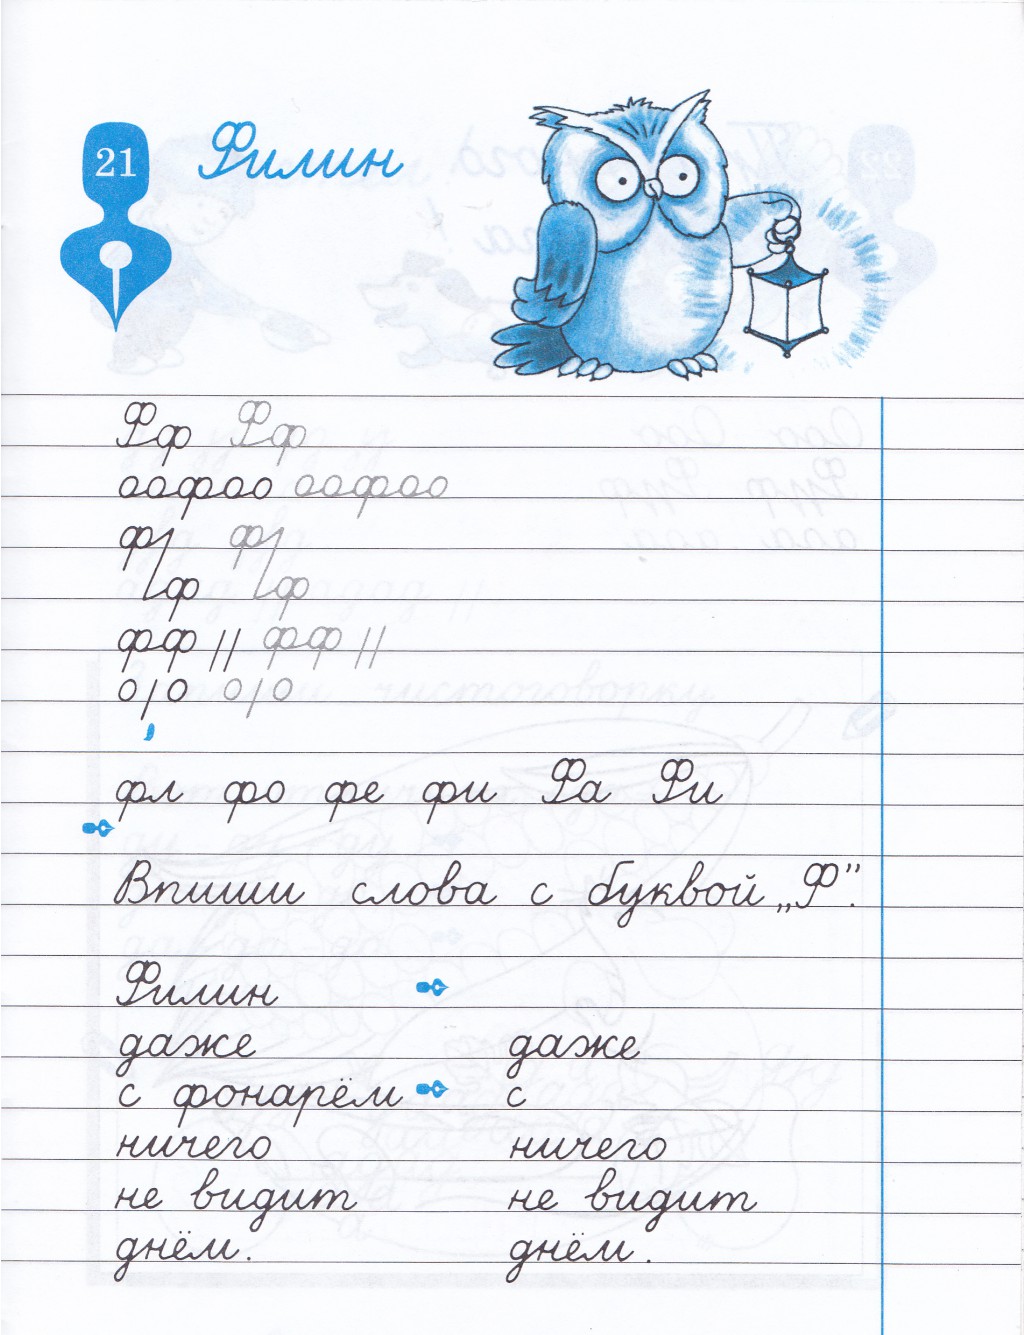 21 Филин
Фф Фф
оафао оафао
ф
ф
фф фф
о/о о/о
фл фо фе фи Фа Фи
Впиши слова с буквой „Ф".
Филин
даже даже
с фонарём с
ничего ничего
не видит не видит
днём. днём.